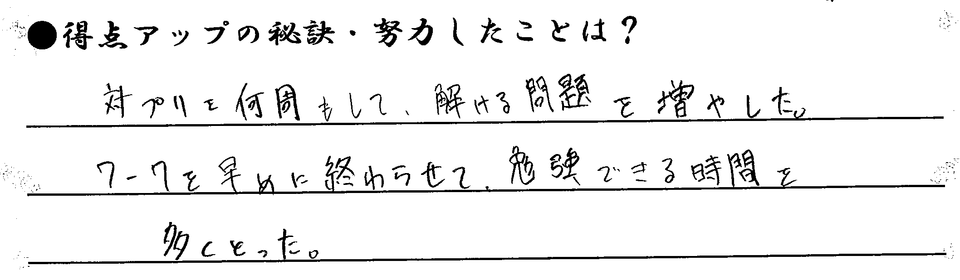 ●得点アップの秘訣・努力したことは？
対プリを何周もして、解ける問題を増やした。
ワークを早めに終わらせて、勉強できる時間を
多くとった。